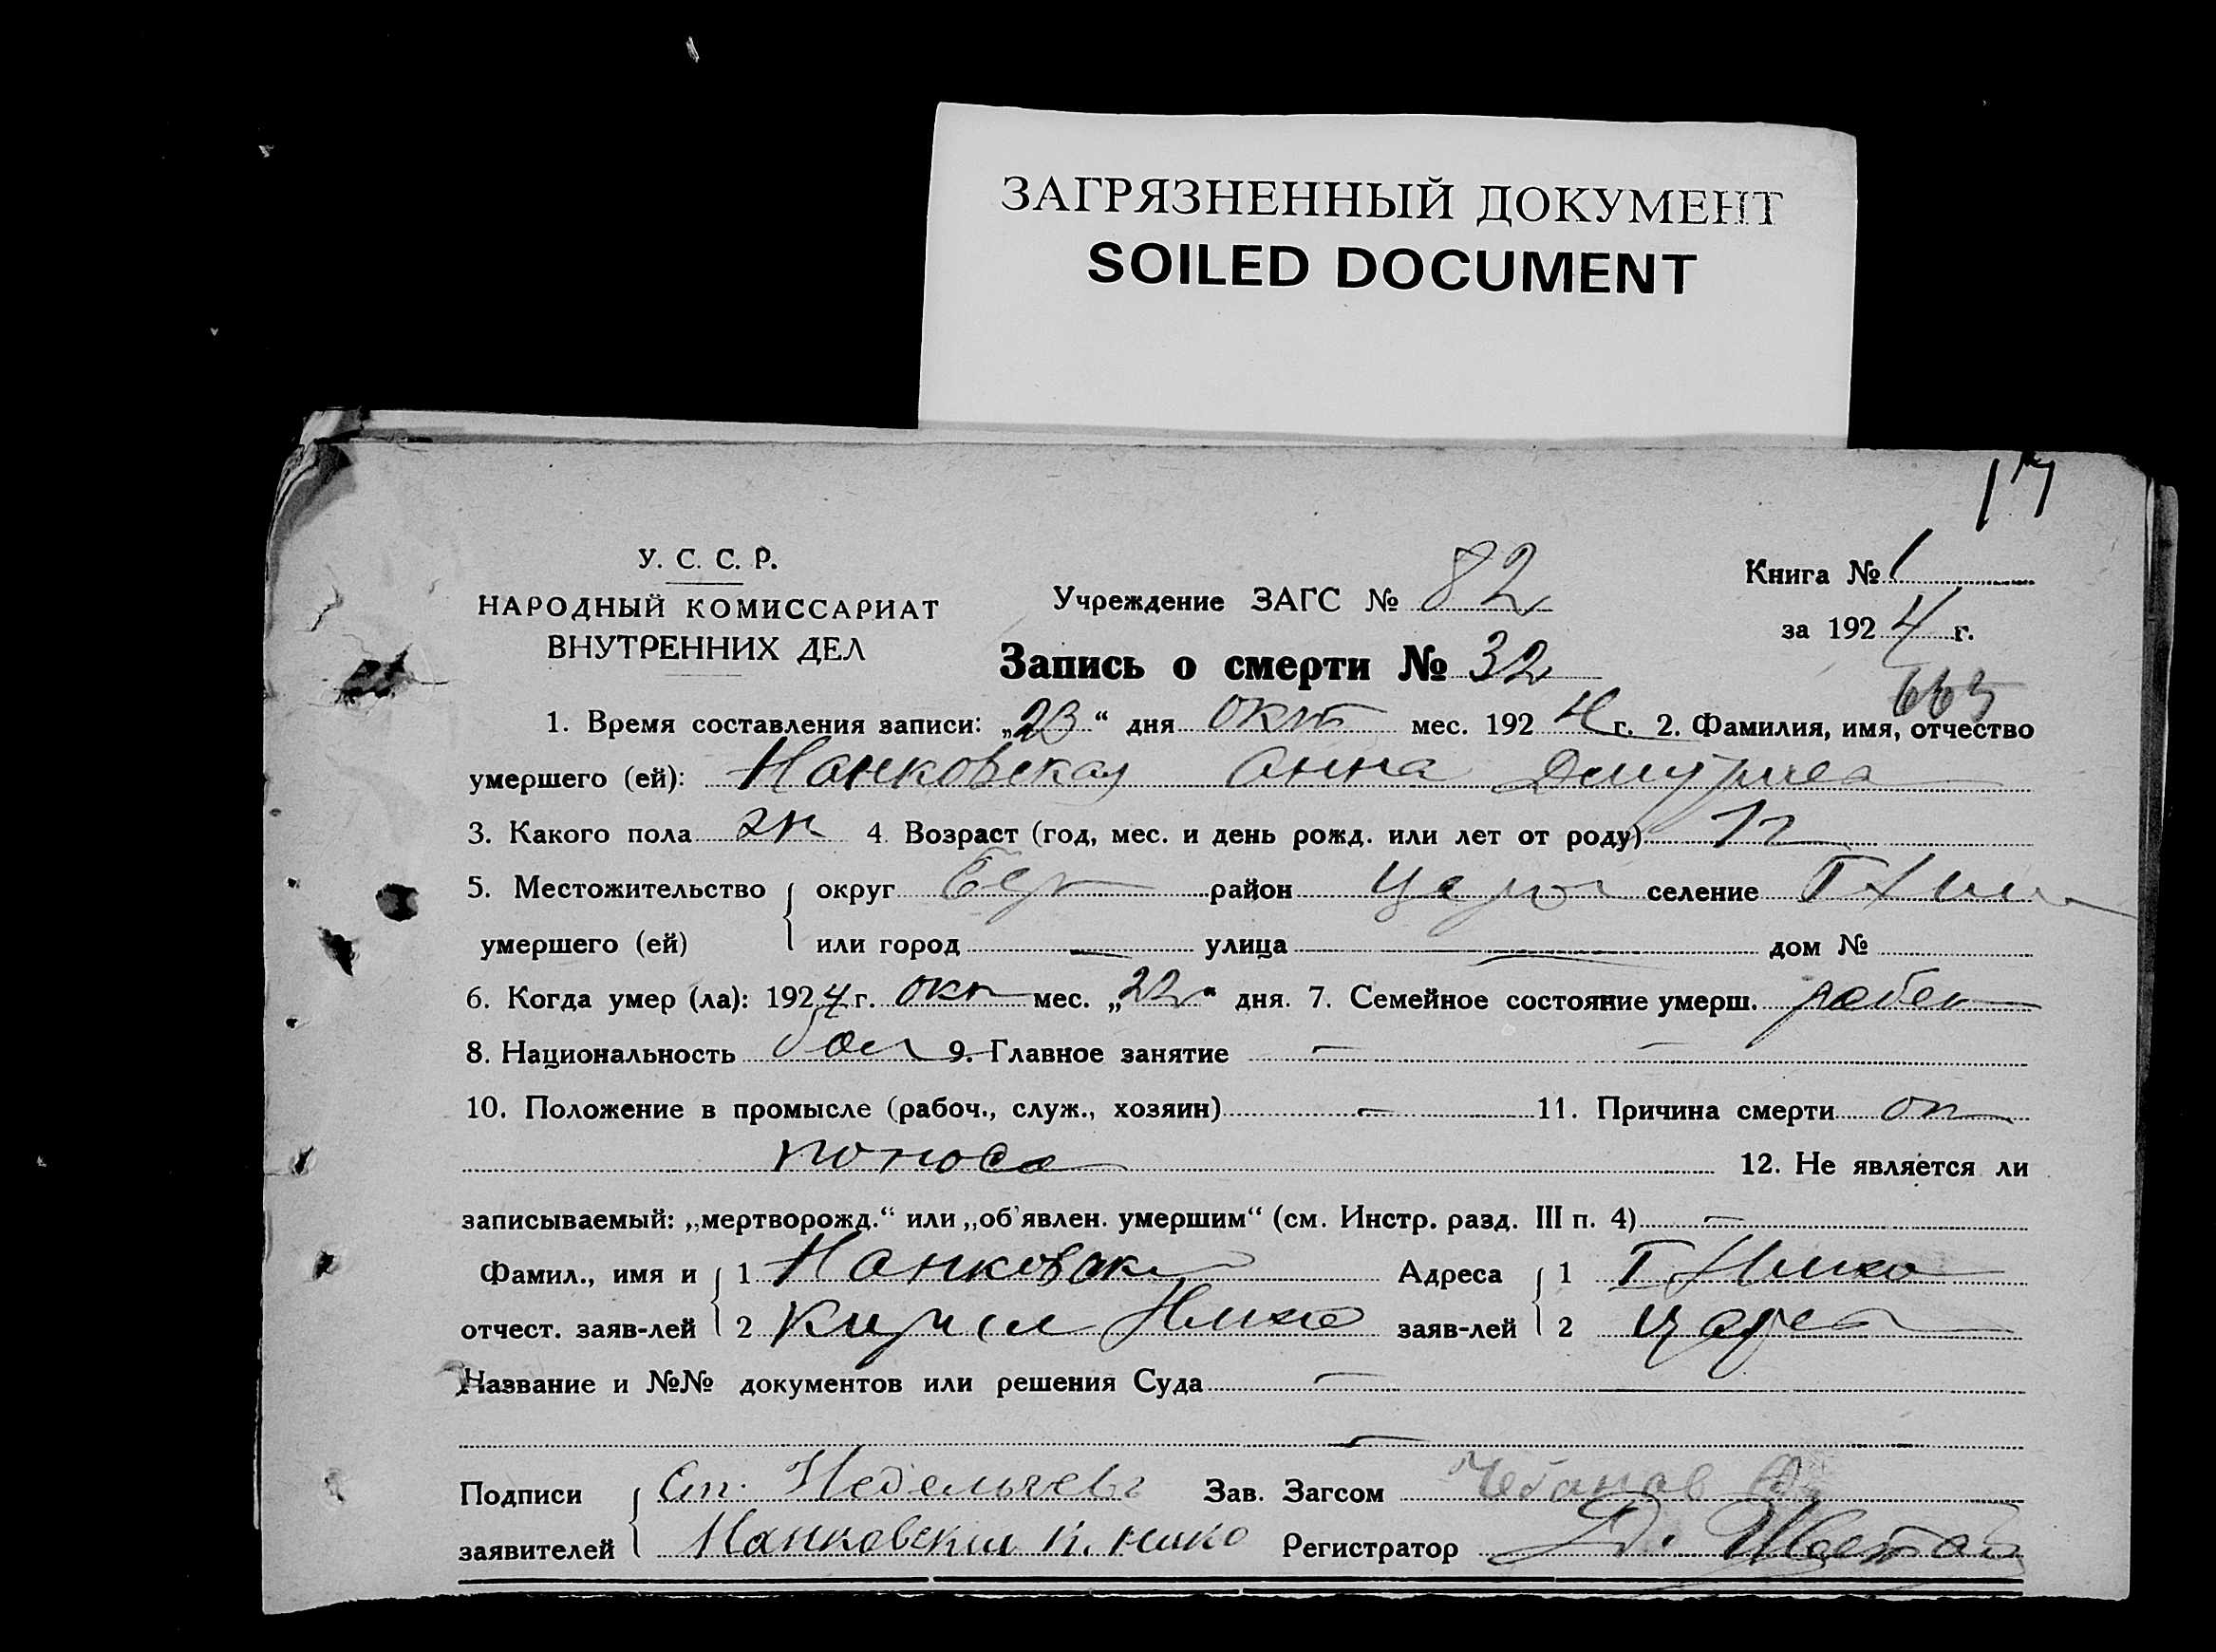 ЗАГРЯЗНЕННЫЙ ДОКУМЕНТ
SOILED DOCUMENT
17
У. С. С. Р.
НАРОДНЫЙ КОМИССАРИАТ
ВНУТРЕННИХ ДЕЛ
Учреждение ЗАГС № 82
Книга № 1
за 1924 г.
Запись о смерти № 32
665
1. Время составления записи: „23“ дня окт мес. 1924 г. 2. Фамилия, имя, отчество
умершего (ей): Нанковская Анна
3. Какого пола ж 4. Возраст (год, мес. и день рожд. или лет от роду) 1 г
5. Местожительство округ район селение
умершего (ей) или город — улица — дом №
6. Когда умер (ла): 1924 г. окт мес. „22“ дня. 7. Семейное состояние умерш. ребен
8. Национальность бол 9. Главное занятие — —
10. Положение в промысле (рабоч., служ., хозяин) — 11. Причина смерти от
поноса 12. Не является ли
записываемый: „мертворожд.“ или „об'явлен. умершим“ (см. Инстр. разд. III п. 4) —
Фамил., имя и 1 Нанковски Адреса 1
отчест. заяв-лей 2 Кирил заяв-лей 2
Название и №№ документов или решения Суда —
—
Подписи Сп. Недельчевъ Зав. Загсом Чебанов
заявителей Нанковский К. Нико Регистратор